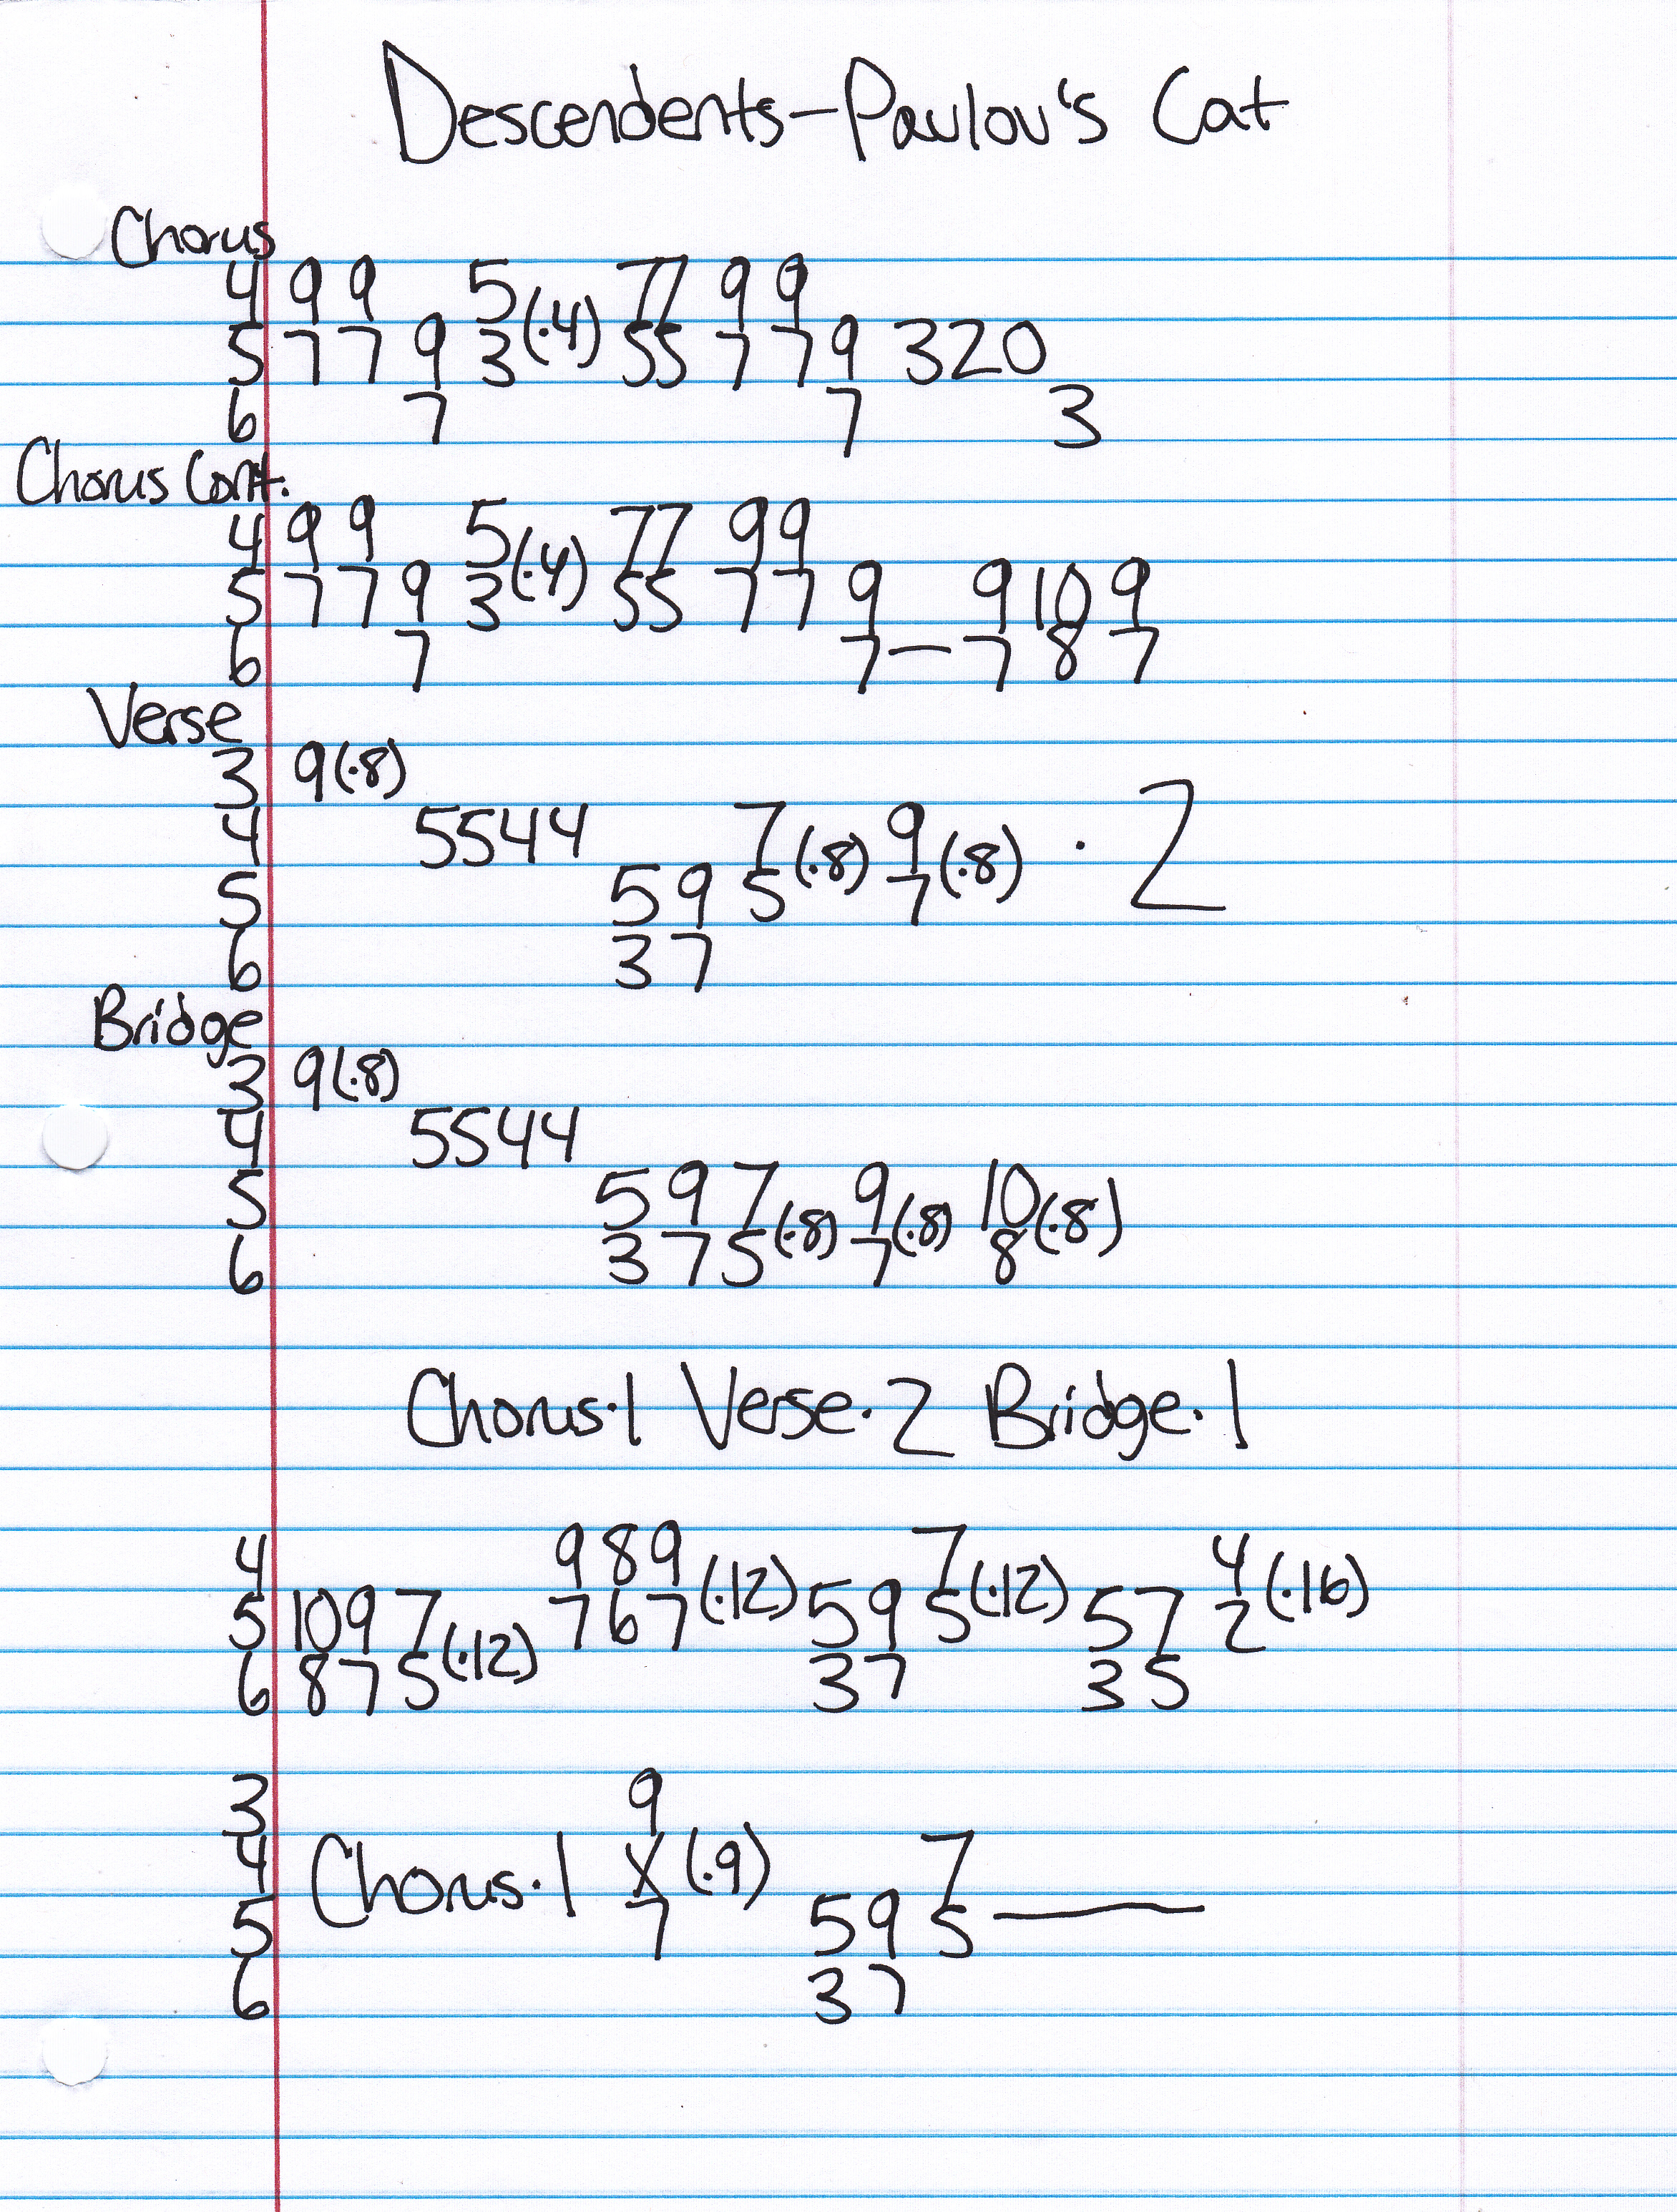 Descendents-Pavlov's Cat
Chorus
4 9 9 5 77 9 9
5 7 7 9 3(·4) 55 7 7 9 320
6 7 7 3
Chorus Cont.
4 9 9 5 77 99
5 7 7 9 3(·4) 55 7 7 9 9 10 9
6 7 7—7 8 7
Verse
3 9(·8)
4 5544 7 9 · 2
5 59 5(·8) 7(·8)
6 37
Bridge
3 9(·8)
4 5544
5 597 9 10
6 375(·8) 7(·8) 8(·8)
Chorus·1 Verse·2 Bridge·1
4 989 7 4
5 1097 767(·12) 59 5(·12) 57 2(·16)
6 875(·12) 37 35
3 9
4 Chorus·1 X (·9) 7
5 7 59 5—
6 37